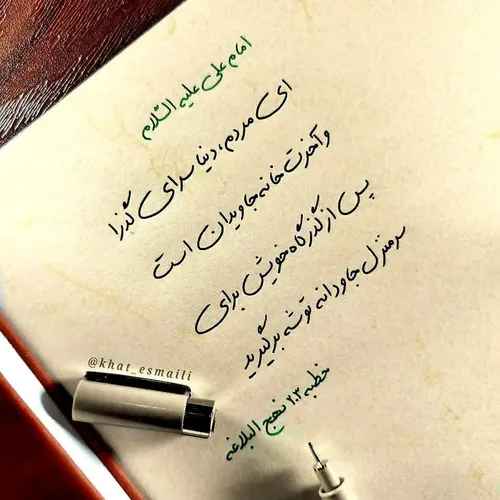 امام علی علیه السّلام
ای مردم، دنیا سرای گذرا
و آخرت خانه جاویدان است
پس از گذرگاه خویش برای
سر منزل جاودانه توشه برگیرید
خطبه ۲۰۳ نهج البلاغه
@khat_esmaili